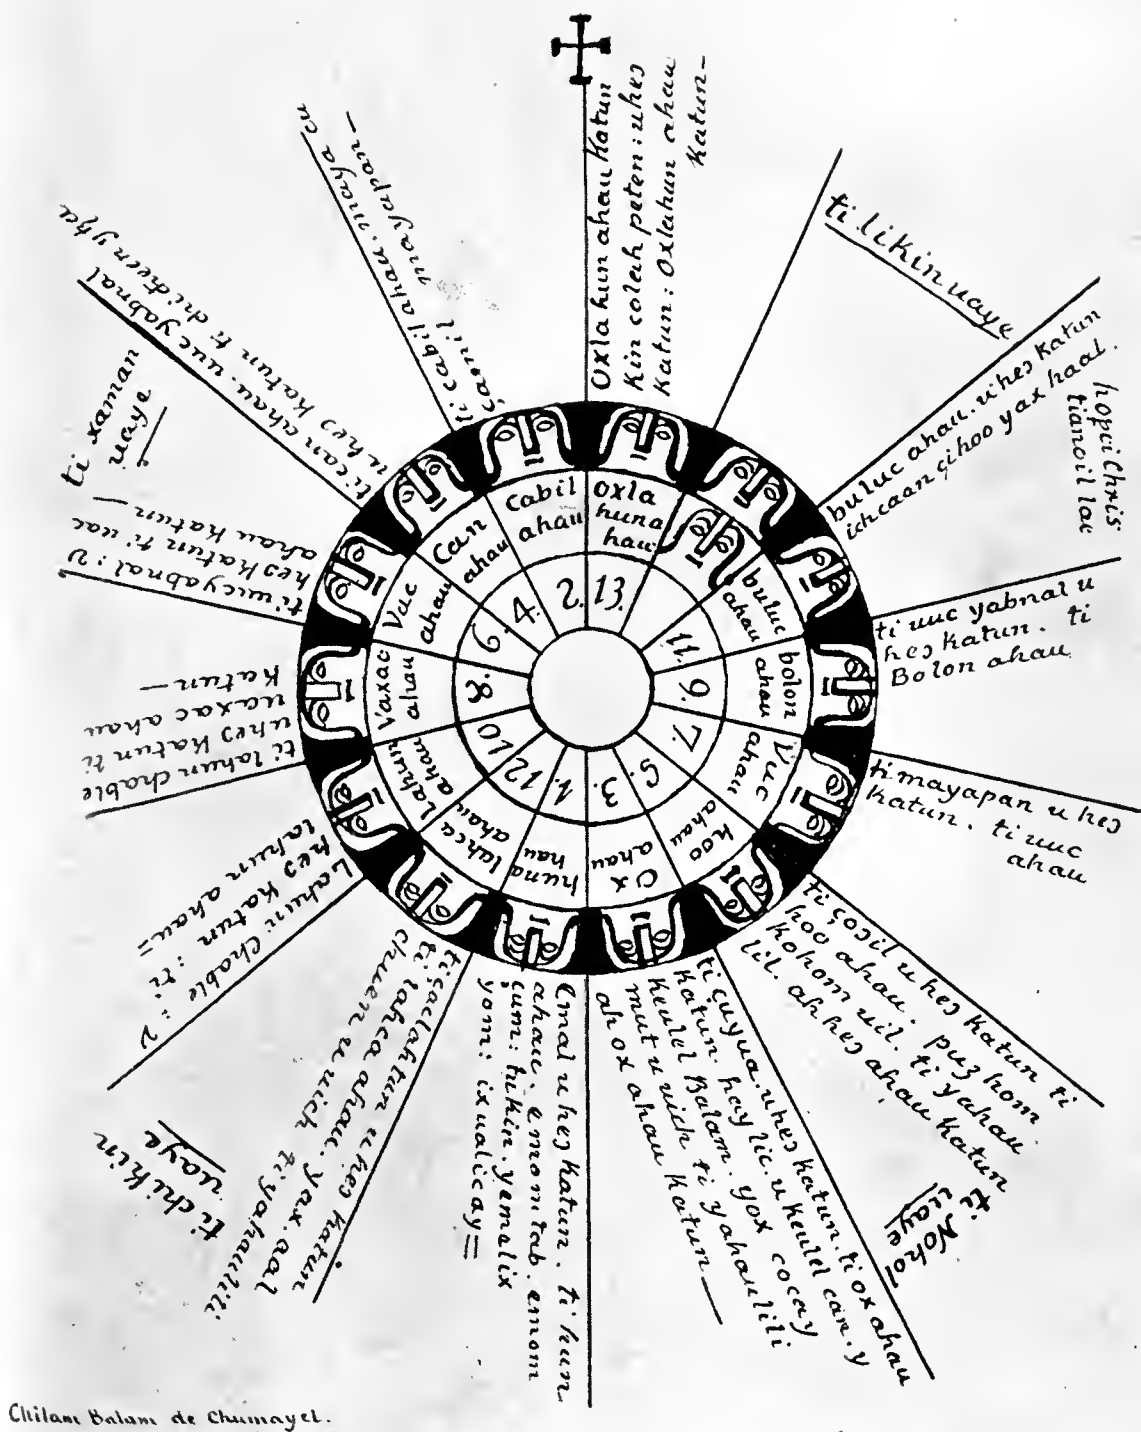 Oxla hun ahau katun
Kin colah peten: uheɔ
Katun: Oxlahun ahau
Katun-
ti likin uaye
buluc ahau. uheɔ katun
ichcaan çihoo yax haal.
hopci Chris
tianoil lae
ti uuc yabnal u
heɔ katun. ti
Bolon ahau
ti mayapan u heɔ
Katun. ti uuc
ahau
ti çoɔil u heɔ katun ti
hoo ahau. puz hom
kohom uil. ti yahau
lil. ah heɔ ahau katun
ti Nohol
uaye
ti çuyua. uheɔ katun. ti ox ahau
Katun. haylic. u keulel can. y
keulel Balam. yox cocay
mut u uich ti yahaulili
ah ox ahau katun—
Emal u heɔ katun. ti hun
ahau. emom tab. emom
çum: tukin. yemelix
yom: ixualicay=
ti çaclahtun u heɔ katun
ti lahca ahau. yax. aal
chuen u uich ti yahauliti
ti chikin
uaye
Lahun Chable: u
heɔ Katun: ti:
lahun ahau=
ti lahun chable
uheɔ Katun ti
uaxac ahau
Katun—
ti uucyabnal: u
heɔ Katun ti uac
ahau Katun—
ti xaman
uaye
ti can ahau. uuc yabnal
u heɔ katun ti
ti cabil ahau. maya cu
mayapan—
Oxla
huna
hau
buluc
ahau
bolon
ahau
Vuc
ahau
hoo
ahau
Ox
ahau
huna
hau
lahca
ahau
Lahun
ahau
Vaxac
ahau
Vac
ahau
Can
ahau
Cabil
ahau
13.
11.
9.
7.
5.
3.
1.
12
10
8.
2.
4.
Chilam Balam de Chumayel.